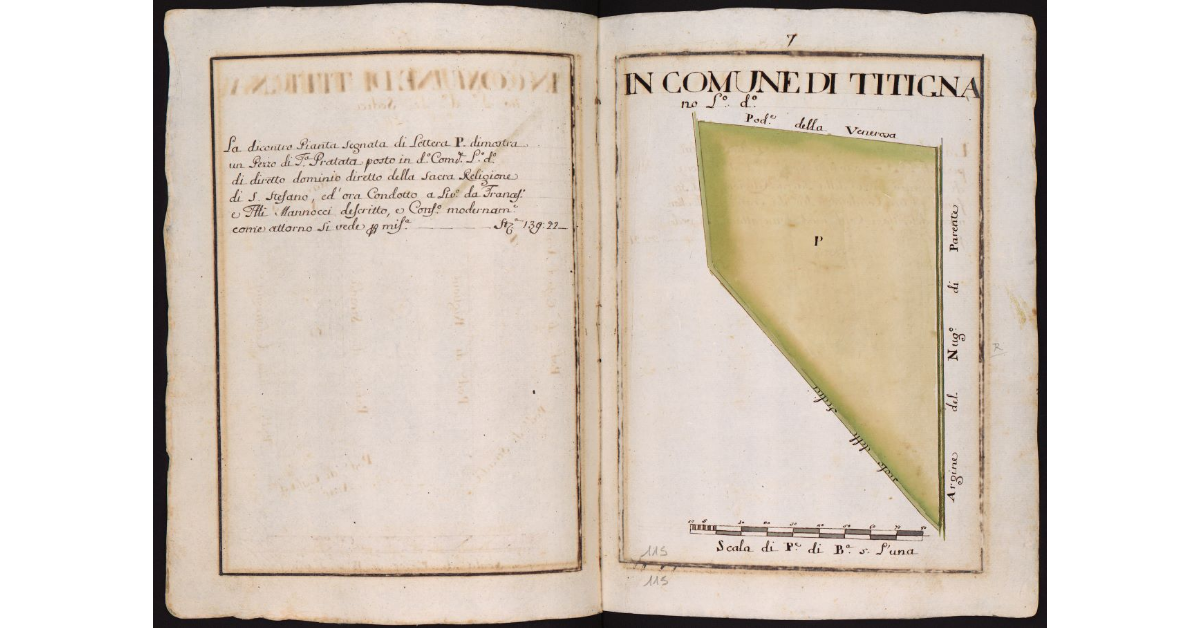 La dicontro Pianta segnata di Lettera P. dimostra
un Pezzo di T.ª Pratata posto in d.º Com.e L.º d.º
di diretto dominio diretto della Sacra Religione
di S. Stefano, ed' ora Condotto a Liv.º da Franc.º
e F'lli Mannocci descritto, e Conf.º modernam.e
come attorno si vede p mis.ª St.ª 139:22
7
IN COMUNE DI TITIGNA
no L.º d.º
Pod.e della Venerosa
P
Argine del Nug.º di Parente
della
Scala di P.e di B.ª 5. l'una
115
115
R